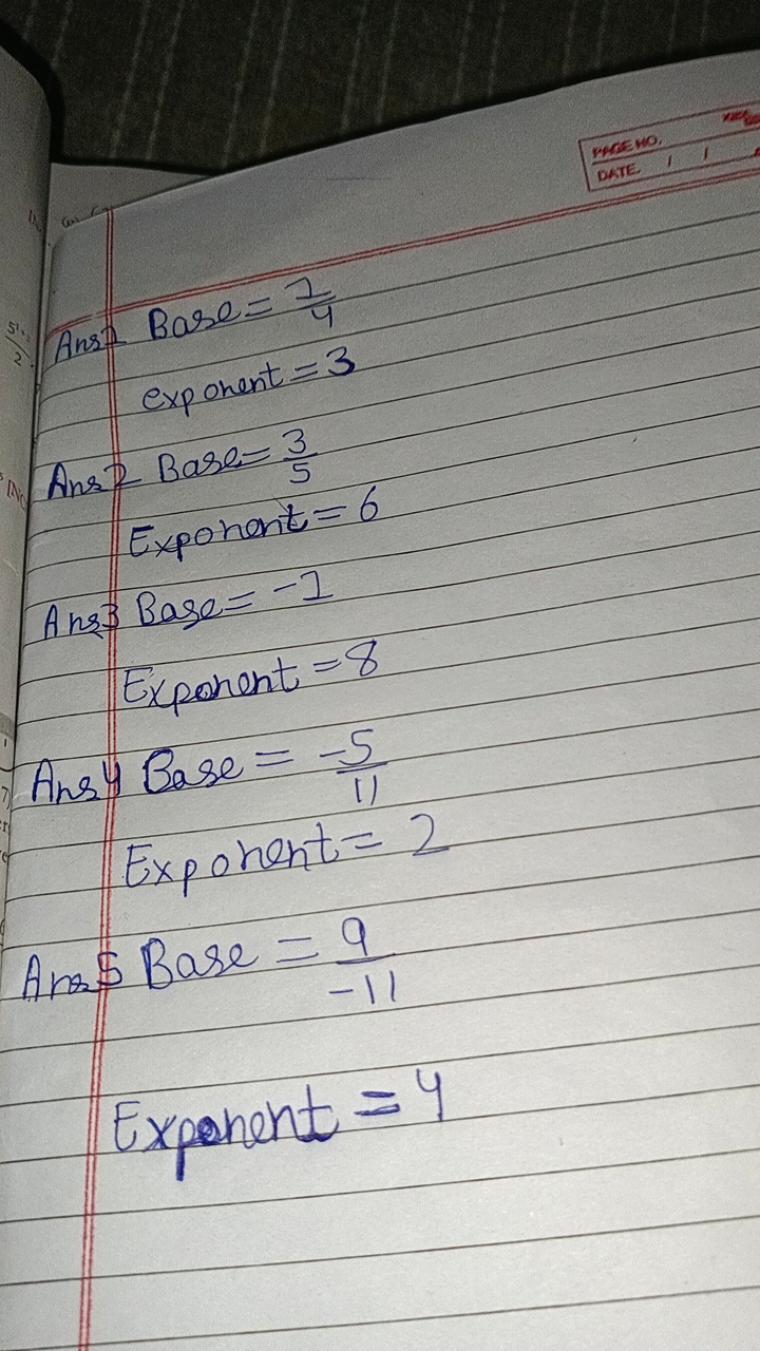 PAGE NO.
DATE. / /
Ans1 Base = 1/4
exponent = 3
Ans2 Base = 3/5
Exponent = 6
Ans3 Base = -1
Exponent = 8
Ans4 Base = -5/11
Exponent = 2
Ans5 Base = 9/-11
Exponent = 4